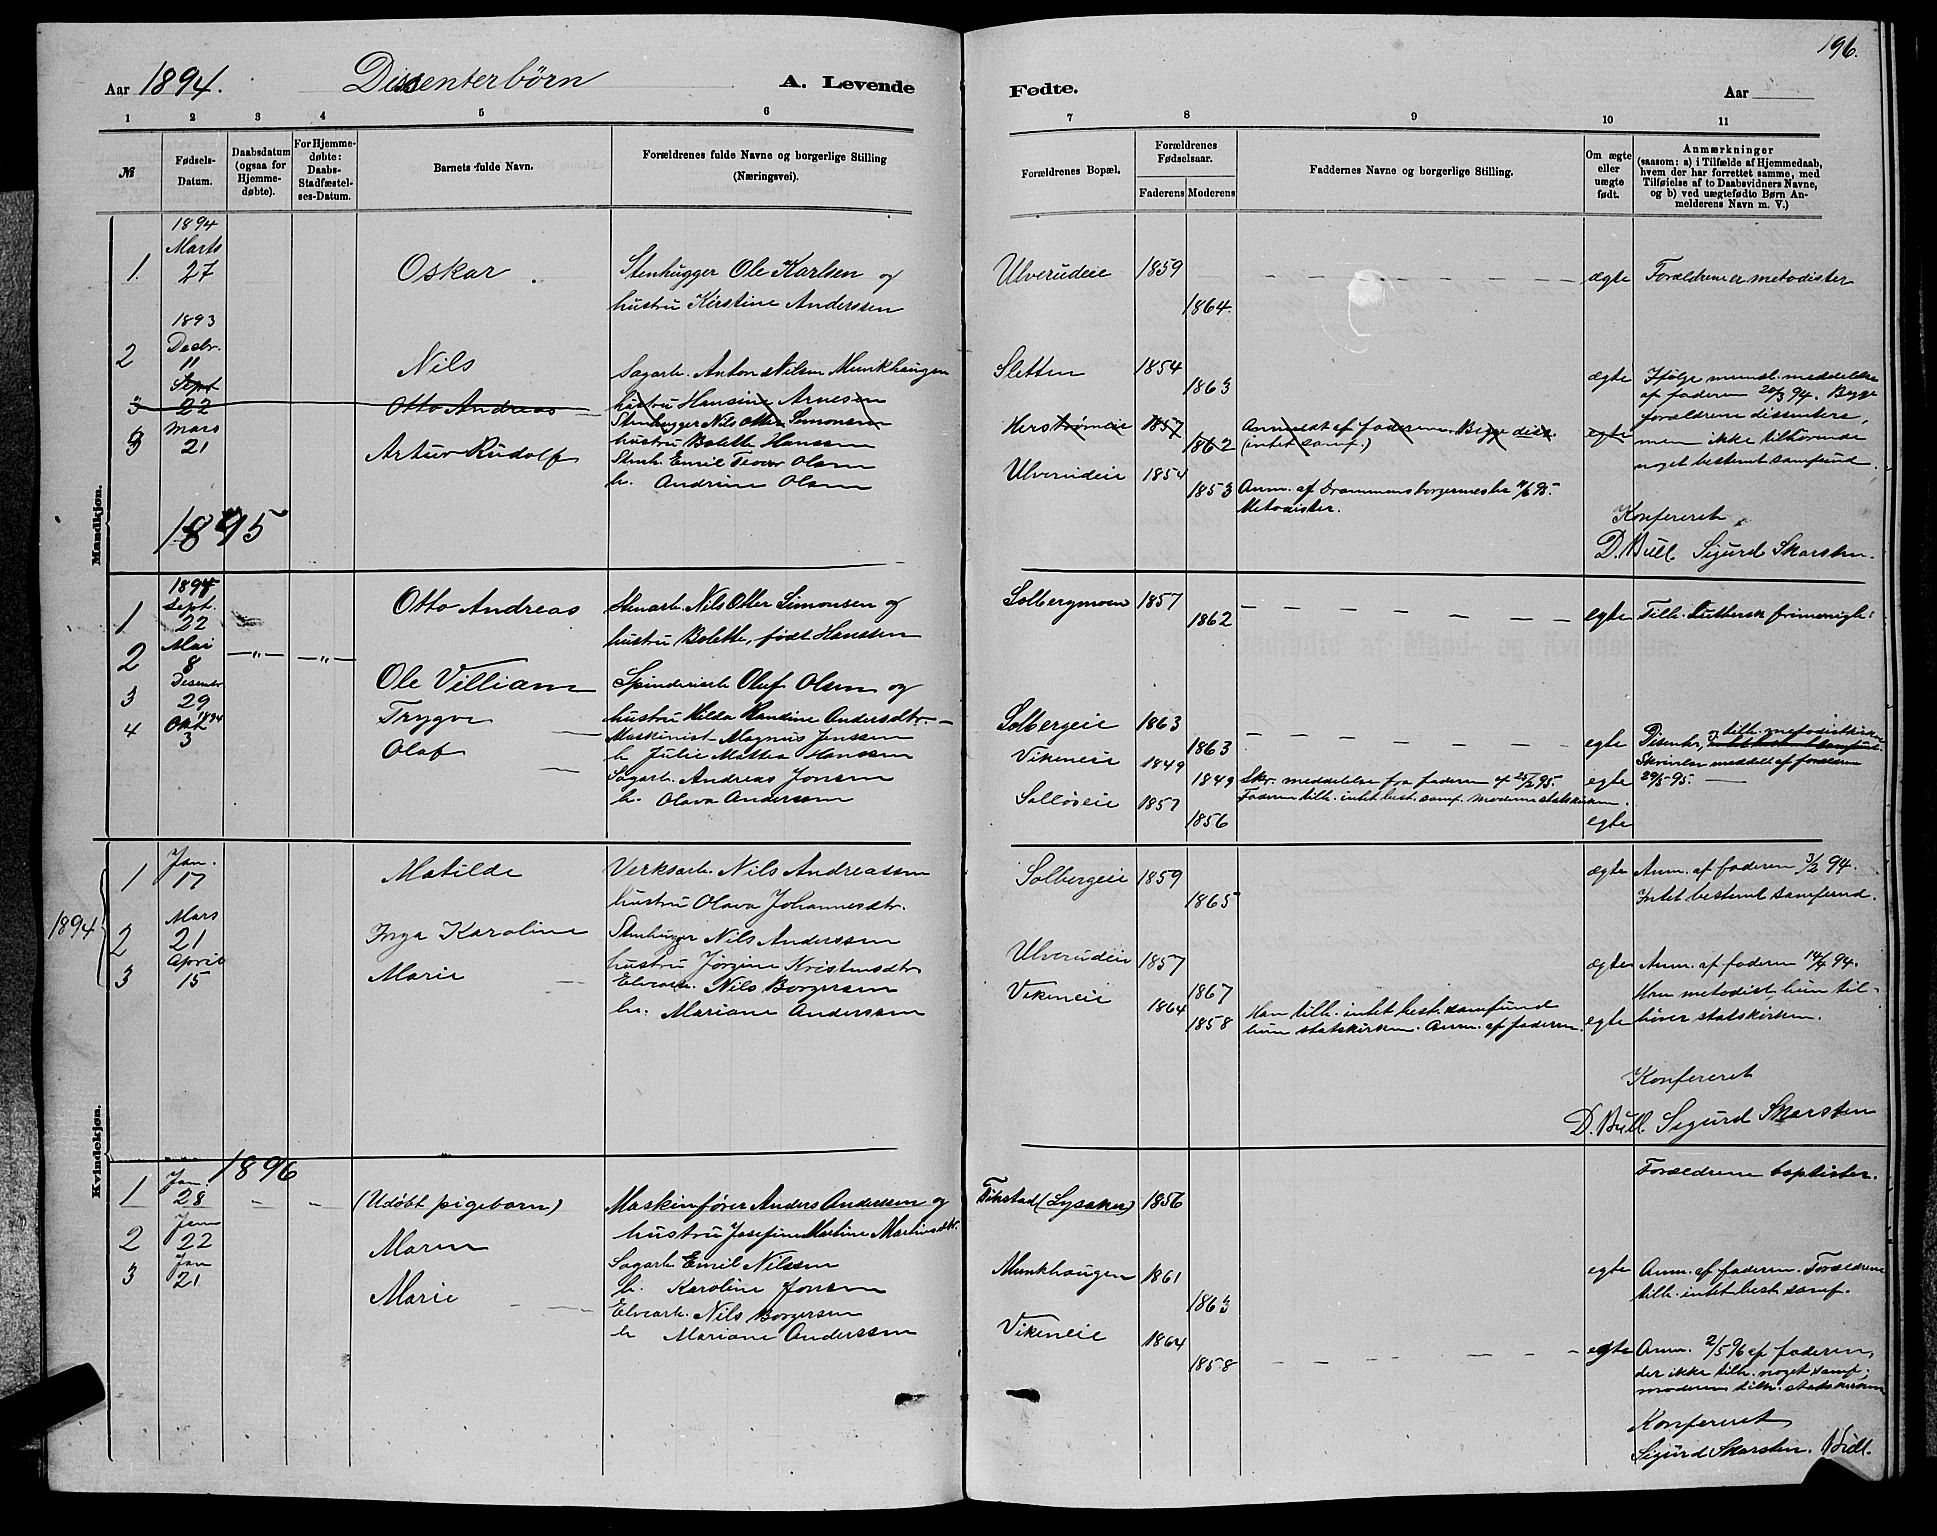 196.
Aar 1894. Dissenterbørn A. Levende Fødte. Aar
1 2 3 4 5 6 7 8 9 10 11
№ Fødsels-Datum. Daabsdatum (ogsaa for Hjemme-døbte). For Hjemme-døbte: Daabs-Stadfæstel-ses-Datum. Barnets fulde Navn. Forældrenes fulde Navne og borgerlige Stilling (Næringsvei). Forældrenes Bopæl. Forældrenes Fødselsaar. Faderens Moderens Faddernes Navne og borgerlige Stilling. Om ægte eller uægte født. Anmærkninger (saasom: a) i Tilfælde af Hjemmedaab, hvem der har forrettet samme, med Tilføielse af to Daabsvidners Navne, og b) ved uægtefødte Børn An-melderens Navn m. V.)
Mandkjøn.
1. 1894 Marts 27 Oskar Stenhugger Ole Karlsen og Ulverudeie 1859 ægte Forældrene er metodister
hustru Kirstine Anderssen 1864.
2 1893 Decbr. 11 Nils Sagarb. Anton Nilsen Munkhaugen Sletten 1854 ægte Ifølge mundl. meddelelse
hustru Hansine Arnesen 1863 af faderen 20/3 94. Begge
forældrene dissentere,
men ikke tilhørende
noget bestemt samfund.
3 Sept 22 Otto Andreas Stenhugger Nils Otter Simonsen Herstrømeie 1857 Anmeldt af faderen. Begge diss. egte
hustru Bolette Hanssen 1862 (intet samf.)
3 Mars 21 Artur Rudolf Stenh. Emil Teodor Olsen Ulverudeie 1854
h. Andrine Olsen 1853 Anm. af Drammens borgermester 11/6 95.
Metodister.
Konfereret
D. Bull Sigurd Skarsten.
1895
1 1894 Sept. 22 Otto Andreas Stenarb. Nils Otter Simonsen og Solbergmoen 1857 egte Tilh. Luthersk frimenigh:
hustru Bolette, født Hanssen 1862
2 Mai 8 Ole Villiam Spinderiarb. Oluf Olsen og Solbergeie 1863 egte Disenter, tilh. metodistkirken
hustru Hilda Randine Andersdtr. 1863
3 Desember 29 Trygve Maskinist Magnus Janssen Vikeneie 1849 egte Skriftlig meddelt af forældrene
h. Julie Mattea Hanssen 1849 Skr. meddelelse fra faderen af 25/2 95. 29/5 95.
4 Okt. 1894 3 Olaf Sagarb. Andreas Jonsen Solløseie 1857 Faderen tilh. intet best. samf. moderen statskirken. egte
h. Olava Anderssen 1856
Kvindekjøn.
1894
1 Jan. 17 Matilde Verksarb. Nils Andreassen Solbergeie 1859 ægte Anm. af faderen 3/2 94.
hustru Olava Johannesdtr. 1865 Intet bestemt samfund.
2 Mars 21 Inga Karoline Stenhugger Nils Anderssen Ulverudeie 1857 ægte Anm. af faderen 14/4 94.
hustru Jørgine Kristensdtr 1867 Han metodist, hun til-
hører statskirken.
3 April 15 Marie Elvearb. Nils Borgersen Vikeneie 1864 Han tilh. intet best. samfund egte
h. Mariane Anderssen 1858 hun statskirken. Anm. af faderen.
Konfereret
D. Bull. Sigurd Skarsten
1896
1 Jan. 28 (Udøbt pigebarn) Maskinfører Anders Anderssen og (Lysaker) 1856 Forældrene baptister.
hustru Josefine Martine Martinsdtr.
2 Jan 22 Maren Sagarb. Emil Nilssen Munkhaugen 1861 egte Anm. af faderen. Forældrene
h. Karoline Jonsen 1863 tilh. intet best. samf.
3 Jan 21 Marie Elvearb. Nils Borgersen Vikeneie 1864 egte Anm. 2/5 96 af faderen,
h. Mariane Anderssen 1858 der ikke tilh. noget samf;
moderen tilh. statskirken
Konfereret
Sigurd Skarsten. Bull.